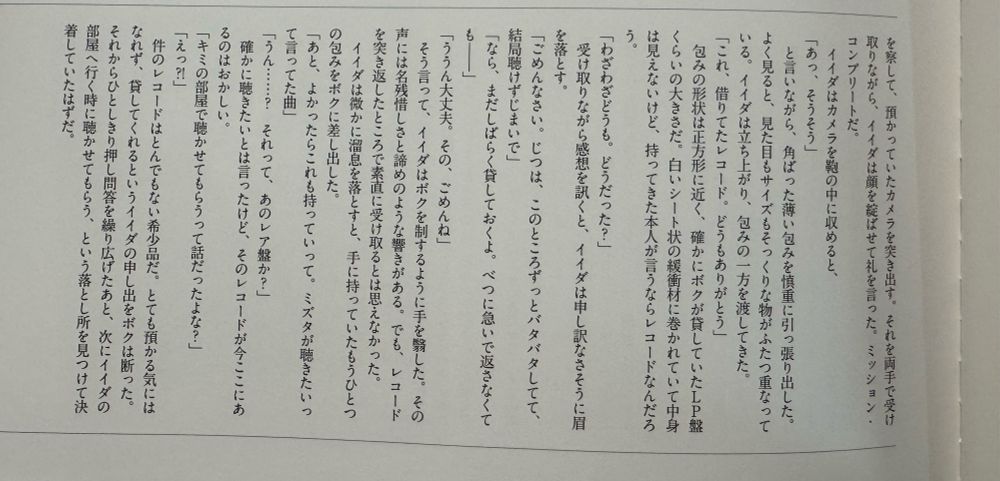 を察して、預かっていたカメラを突き出す。それを両手で受け
取りながら、イイダは顔を綻ばせて礼を言った。ミッション・
コンプリートだ。
イイダはカメラを鞄の中に収めると、
「あっ、そうそう」
と言いながら、角ばった薄い包みを慎重に引っ張り出した。
よく見ると、見た目もサイズもそっくりな物がふたつ重なって
いる。イイダは立ち上がり、包みの一方を渡してきた。
「これ、借りてたレコード。どうもありがとう」
包みの形状は正方形に近く、確かにボクが貸していたＬＰ盤
くらいの大きさだ。白いシート状の緩衝材に巻かれていて中身
は見えないけど、持ってきた本人が言うならレコードなんだろ
う。
「わざわざどうも。どうだった？」
受け取りながら感想を訊くと、イイダは申し訳なさそうに眉
を落とす。
「ごめんなさい。じつは、このところずっとバタバタしてて、
結局聴けずじまいで」
「なら、まだしばらく貸しておくよ。べつに急いで返さなくて
も――」
「ううん大丈夫。その、ごめんね」
そう言って、イイダはボクを制するように手を翳した。その
声には名残惜しさと諦めのような響きがある。でも、レコード
を突き返したところで素直に受け取るとは思えなかった。
イイダは微かに溜息を落とすと、手に持っていたもうひとつ
の包みをボクに差し出した。
「あと、よかったらこれも持っていって。ミズタが聴きたいっ
て言ってた曲」
「うん……？　それって、あのレア盤か？」
確かに聴きたいとは言ったけど、そのレコードが今ここにあ
るのはおかしい。
「キミの部屋で聴かせてもらうって話だったよな？」
「えっ？！」
件のレコードはとんでもない希少品だ。とても預かる気には
なれず、貸してくれるというイイダの申し出をボクは断った。
それからひとしきり押し問答を繰り広げたあと、次にイイダの
部屋へ行く時に聴かせてもらう、という落とし所を見つけて決
着していたはずだ。